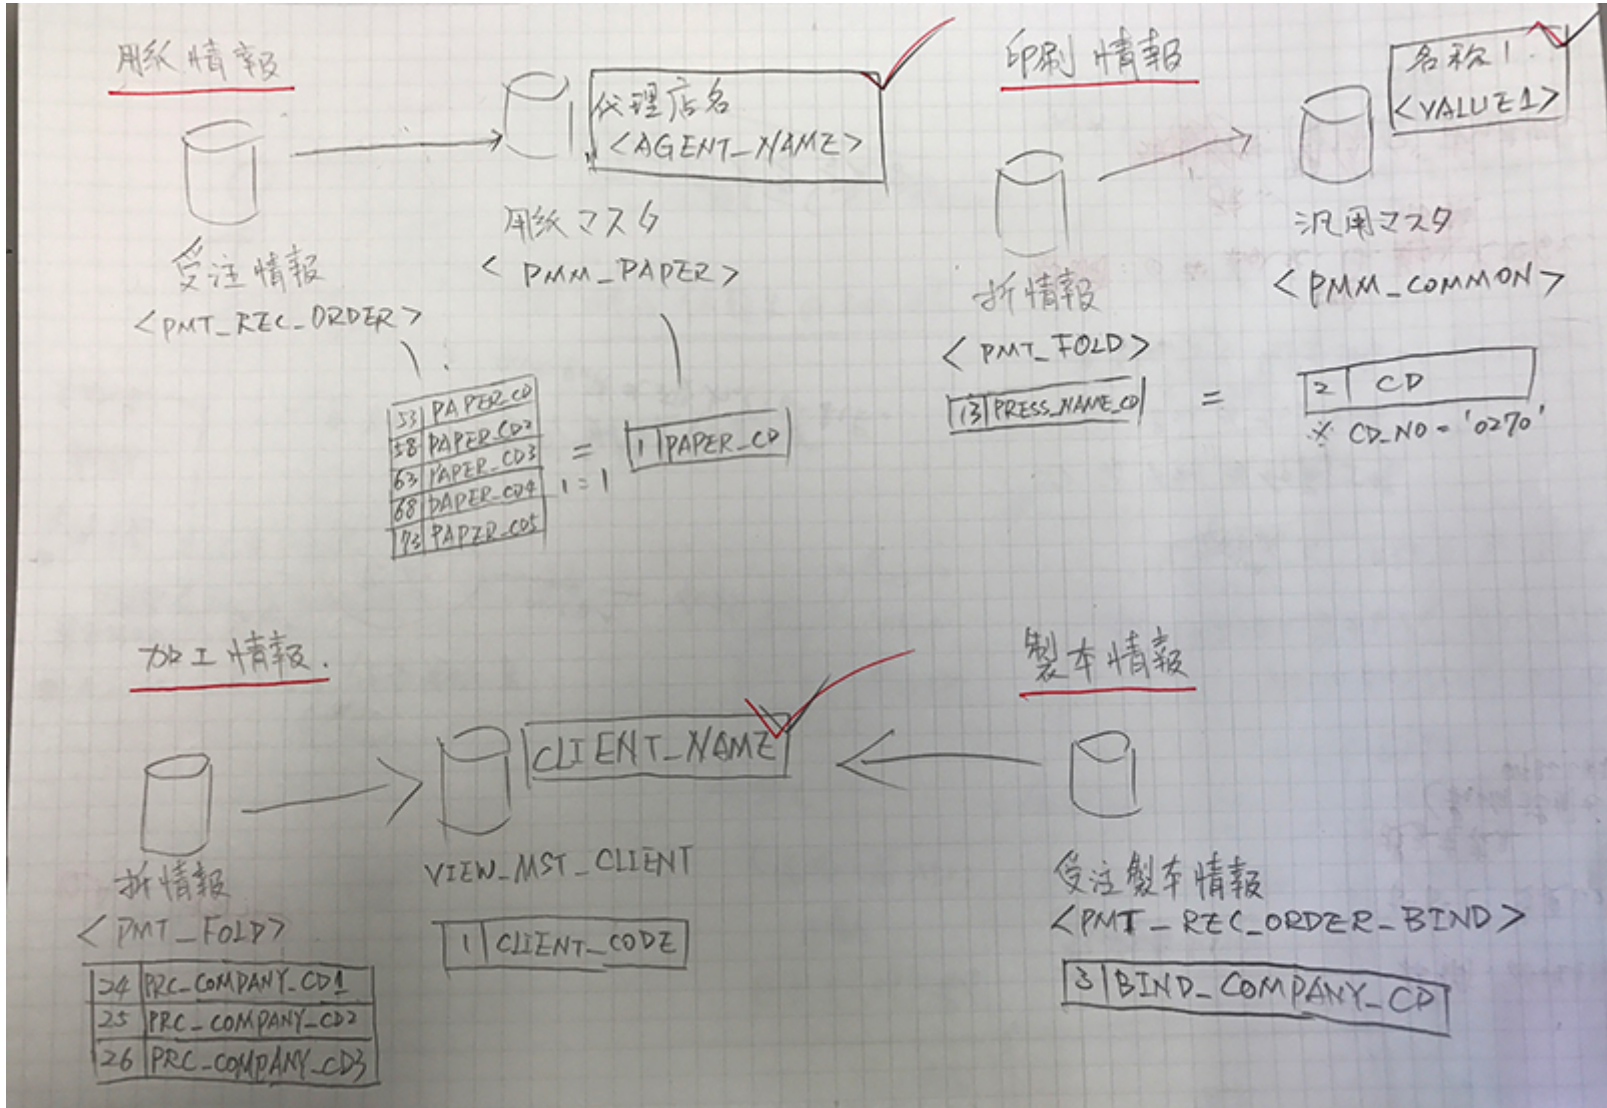 用紙情報
代理店名
<AGENT_NAME>
用紙マスタ
<PMM_PAPER>
受注情報
<PMT_REC_ORDER>
53 PAPER_CD
58 PAPER_CD2
63 PAPER_CD3
68 PAPER_CD4
73 PAPER_CD5
=
1=1
1 PAPER_CD
印刷情報
名称1
<VALUE1>
汎用マスタ
<PMM_COMMON>
折情報
<PMT_FOLD>
13 PRESS_NAME_CD
=
2 CD
※ CD_NO = '0270'
加工情報.
CLIENT_NAME
VIEW_MST_CLIENT
1 CLIENT_CODE
折情報
<PMT_FOLD>
24 PRC_COMPANY_CD1
25 PRC_COMPANY_CD2
26 PRC_COMPANY_CD3
製本情報
受注製本情報
<PMT_REC_ORDER_BIND>
3 BIND_COMPANY_CD